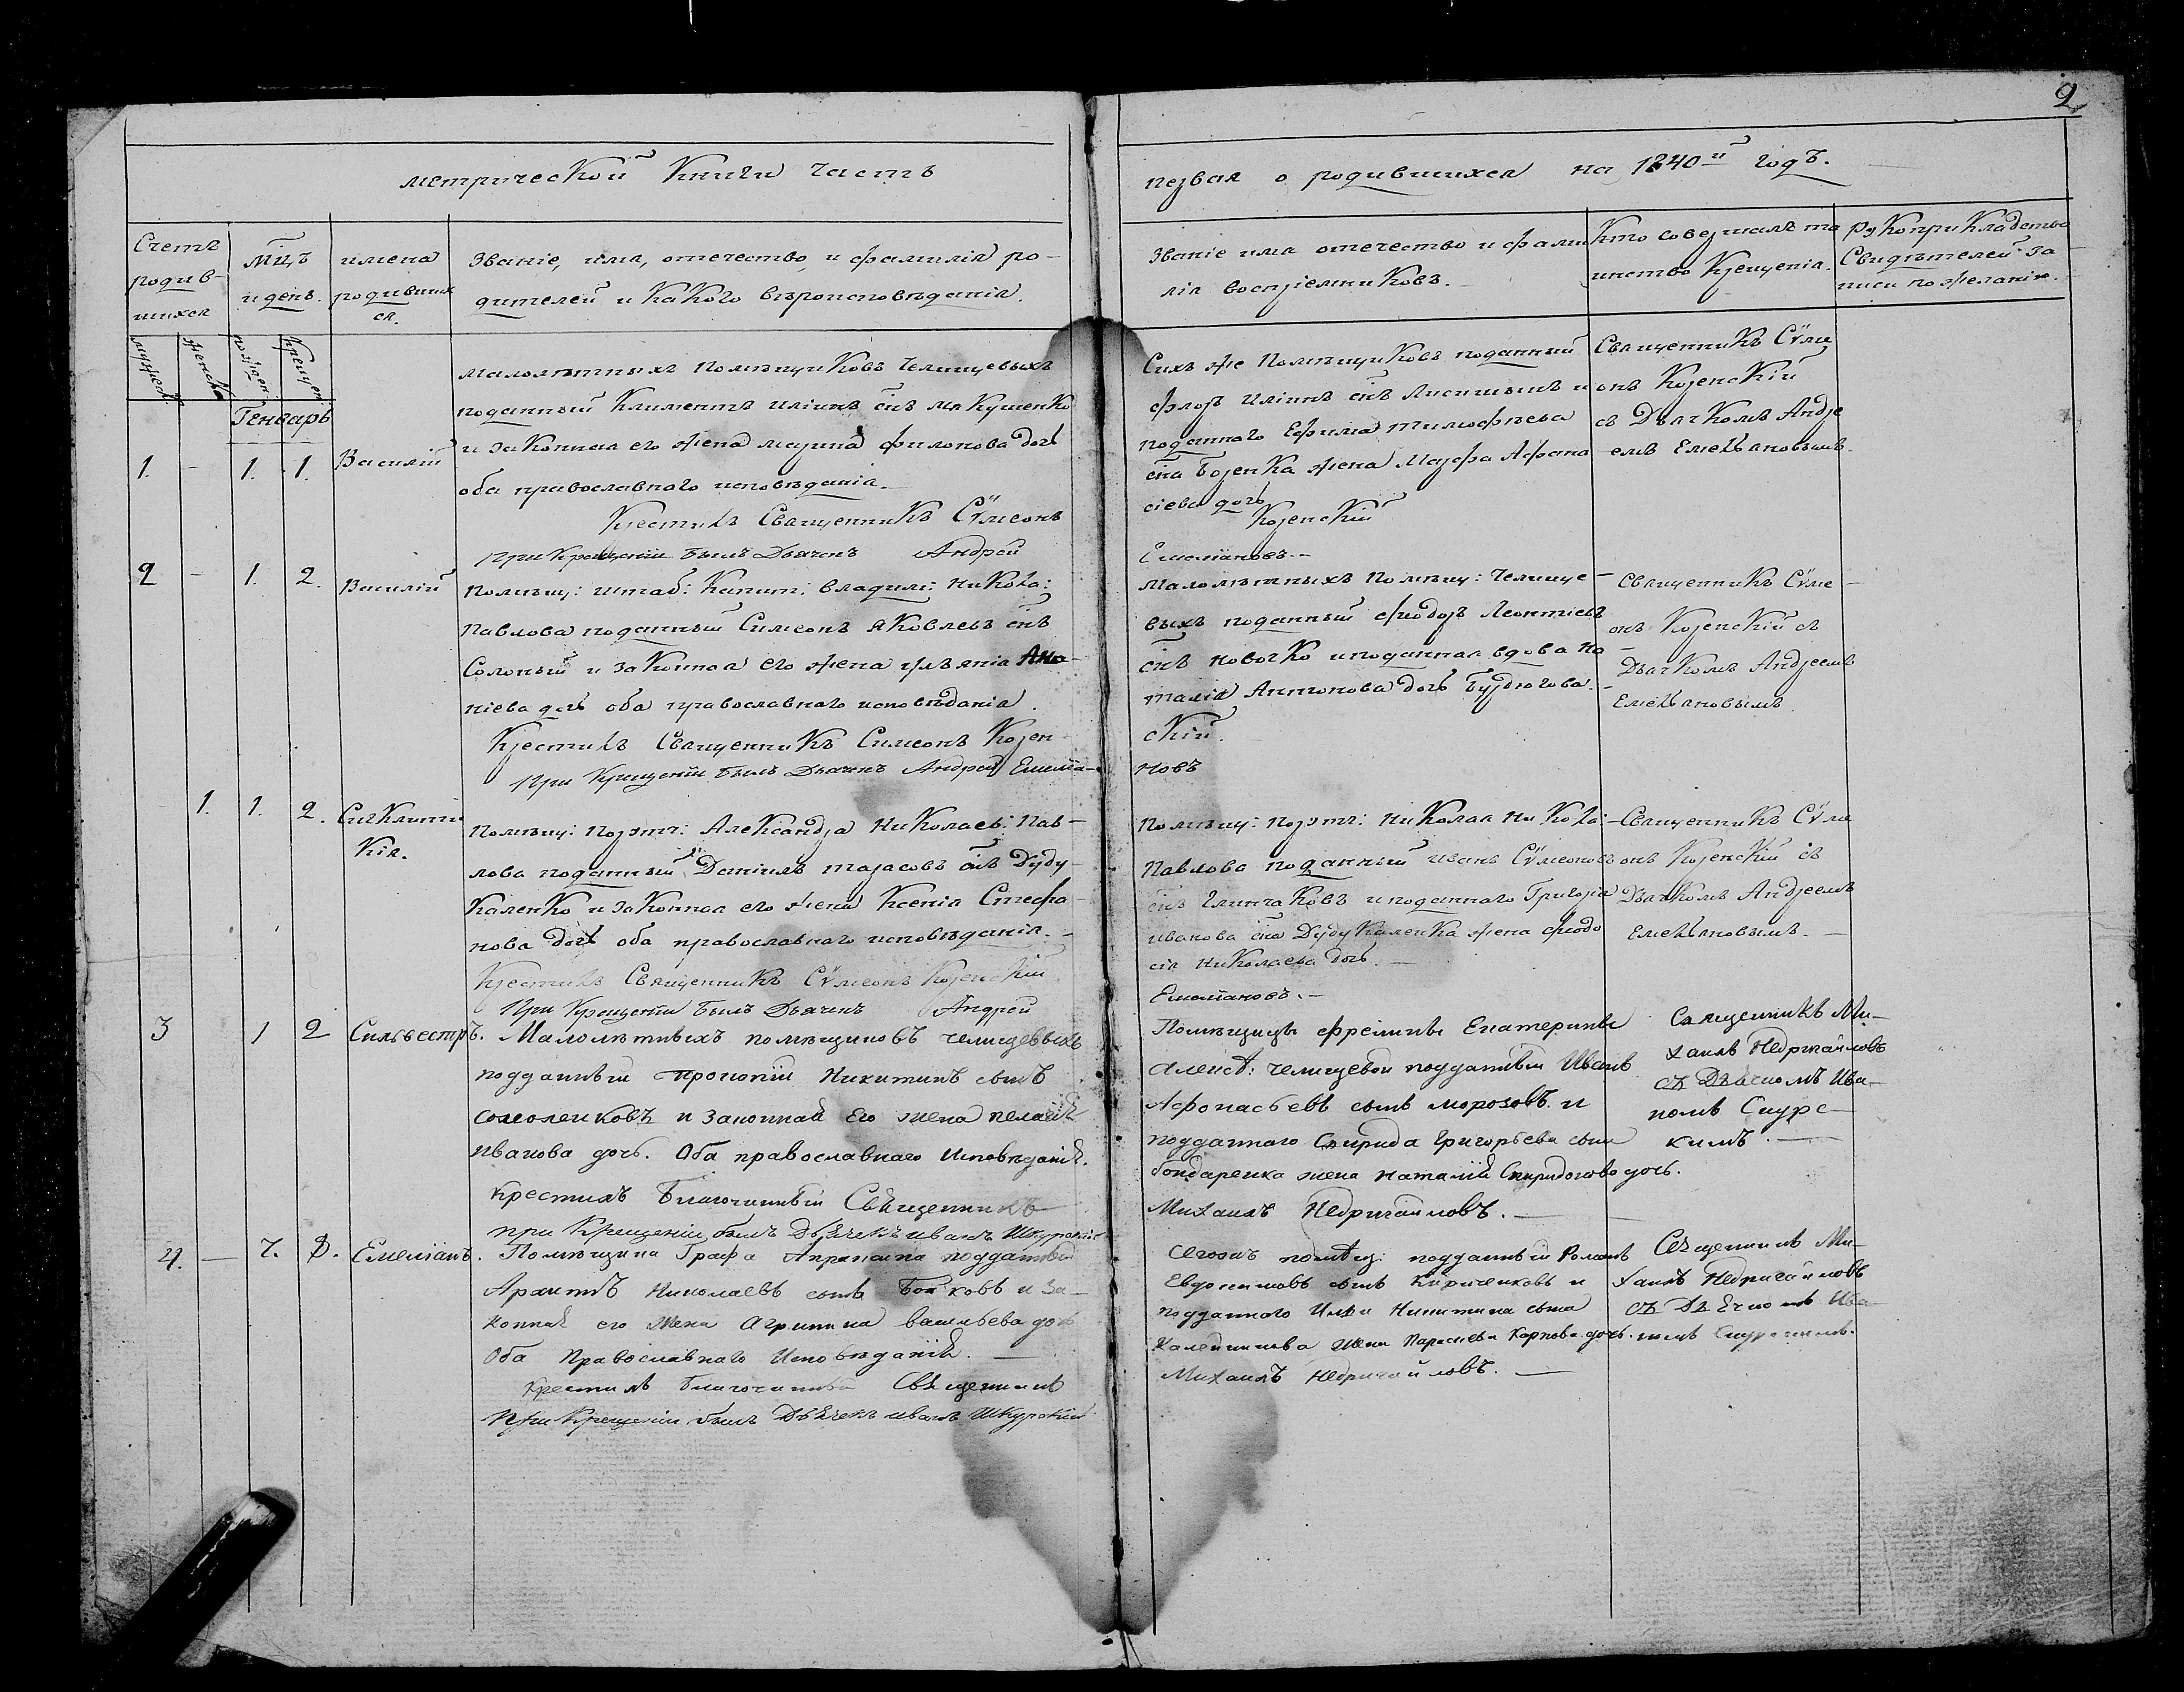 2
метрической Книги часть
первая о родившихся на 1840й годъ.
Счетъ
родив-
шихся
мцъ
и день.
имена
родивших
ся.
Званіе, имя, отечество, и фамилія ро-
дителей и какого вѣроисповѣданія.
Званіе имя отечество и фами
лія воспріемниковъ.
Кто совершалъ та
инство Крещенія.
Рукоприкладство
Свидѣтелей за
писи по желанію.
Генварь
1. - 1. 1. Василій
малолѣтныхъ помѣщиковъ Челищевыхъ
поданный Климентъ иліинъ снъ мякушенко
и законная его жена марина филонова дочь
оба православнаго исповѣданія.
Крестилъ Священникъ Сѵмеонъ
При Крещеніи былъ Дьячекъ Андрей
Сихъ же помѣщиковъ поданный
флоръ иліинъ снъ и
поданного Ефима тимофѣева
сна жена Марфа Афана
сіева дочь
Козенскій
Емеліановъ.-
Священникъ Сѵме
онъ Козенскій
съ Дьячкомъ Андре
емъ Емельяновымъ.
2 - 1. 2. Василій
помѣщ: штаб: Капит: владим: никол:
павлова поданный Симеонъ яковлевъ снъ
Солоный и законная его жена
ніева дочь оба православнаго исповѣданія.
Крестилъ Священникъ Симеонъ Козен
При Крещеніи былъ Дьячекъ Андрей Емеліа-
малолѣтныхъ помѣщ: Челище-
выхъ поданный фіодоръ Леонтіевъ
снъ и поданная вдова на
талія Антонова дочь
скій.
новъ
Священникъ Сѵме-
онъ Козенскій съ
Дьячкомъ Андреемъ
Емельяновымъ.
1. 1. 2. Сигклити
кія.
помѣщ: пор: Александра николаев: пав-
лова поданный Даніилъ тарасовъ снъ Дуду-
каленко и законная его жена Ксенія Стефа-
нова дочь оба православнаго исповѣданія.-
Крестилъ Священникъ Сѵмеонъ Козенскій
При Крещеніи былъ Дьячекъ Андрей
помѣщ: пор: николая никол:
павлова поданный иванъ Сѵмеоновъ
снъ и поданного Григорія
иванова сна Дудукаленка жена фіодо
сія николаева дочь.-
Емеліановъ.-
Священникъ Сѵме
онъ Козенскій съ
Дьячкомъ Андреемъ
Емельяновымъ.-
3 1 2 Сильвестръ.
Малолѣтныхъ помѣщиковъ челищевыхъ
подданный Прокопій Никитинъ сынъ
и законная его жена пелагія
Иванова дочь. Оба православнаго Исповѣданія.
Крестилъ Благочинный Священникъ
при Крещеніи былъ Дьячекъ иванъ Шкурскій
Помѣщицы фрелины Екатерины
Алекс: челищевой подданный Иванъ
Афонасьевъ сынъ морозовъ. и
подданного Спирида Григорьева сына
бондаренка жена наталія Спиридонова дочь.
Михаилъ Недригайловъ.
Священникъ Ми-
хаилъ Недригайловъ
съ Дьячкомъ Ива-
номъ
кимъ.
4. - 7. 8. Емеліанъ.
Помѣщика Графа Апраксина подданный
Архипъ Николаевъ сынъ и за-
конная его жена Агрипина васильева дочь
Оба Православнаго Исповѣданія.
Крестилъ Благочинный Священникъ
При Крещеніи былъ Дьячекъ иванъ Шкурскій
Сегожъ помѣщ: подданный Романъ
Евдокимовъ сынъ Кириченковъ и
подданного Ильи Никитина сына
жена Параскева Карпова дочь.
Михаилъ Недригайловъ.
Священникъ Ми-
хаилъ Недригайловъ
съ Дьячкомъ Ива-